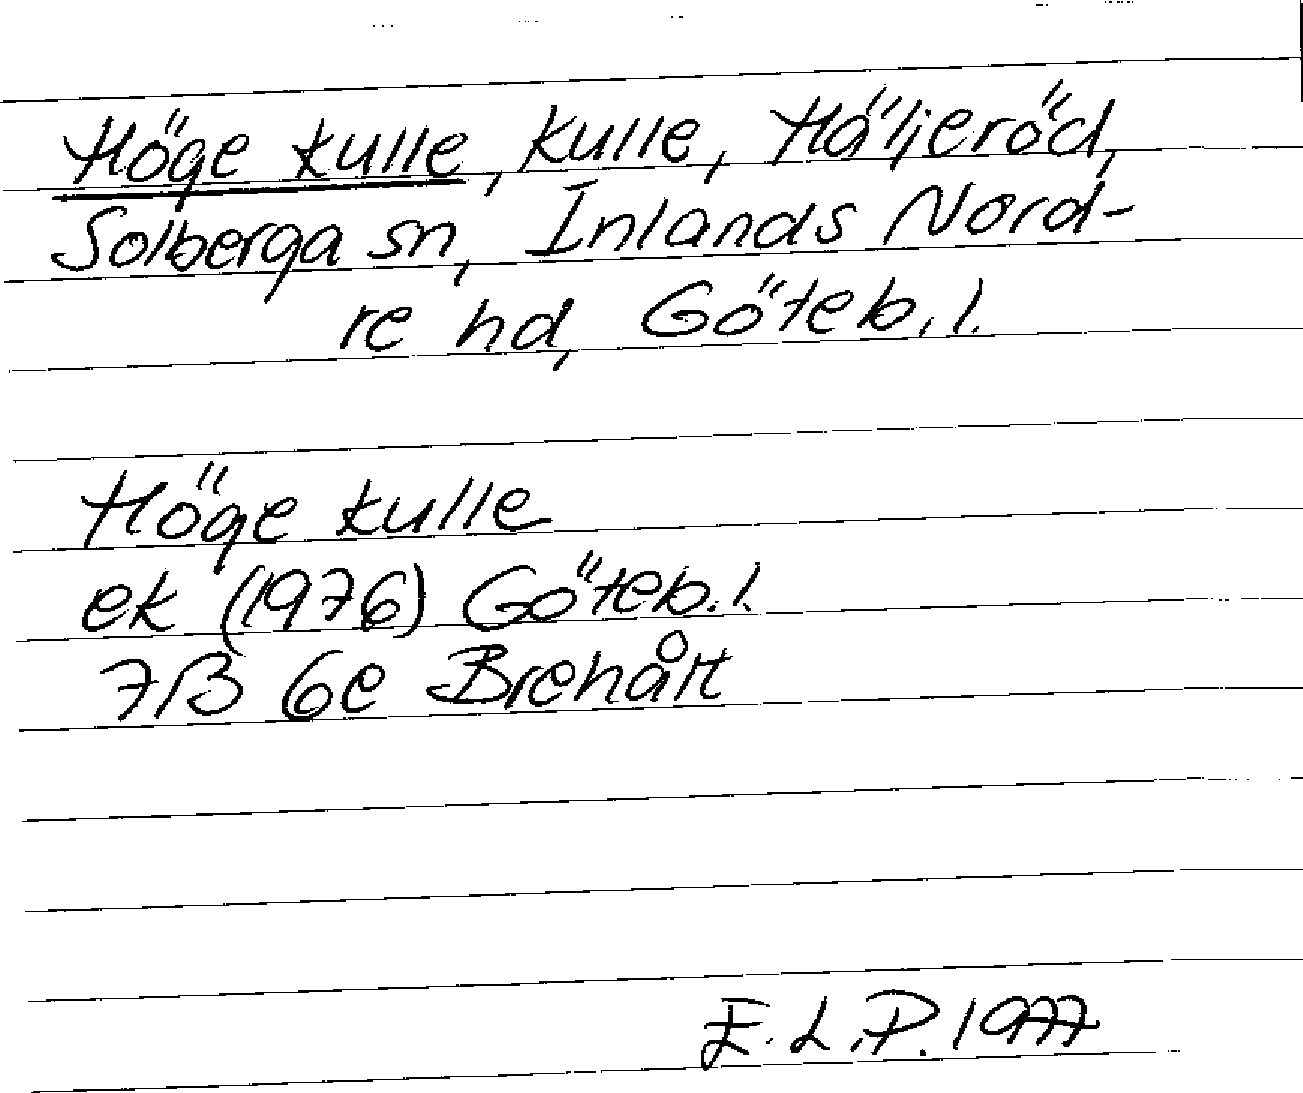 Höge kulle, kulle, Häljeröd,
Solberga sn, Inlands Nord-
re hd, Göteb. l.
Höge kulle
ek (1976) Göteb. l.
7B 6e Brehålt
E.L.P. 1977